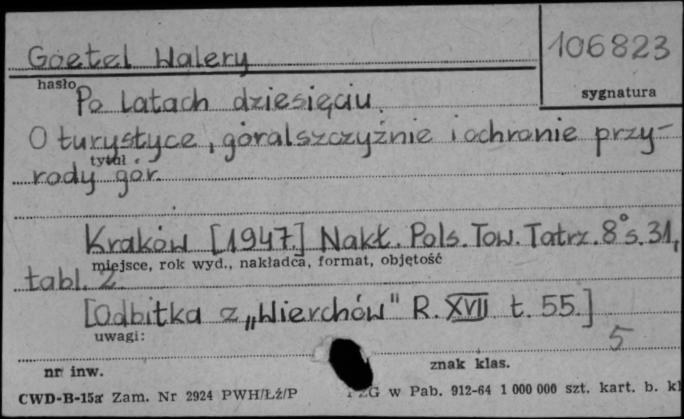 Goetel Walery
106823
hasło
sygnatura
Po latach dziesięciu.
O turystyce, góralszczyźnie i ochronie przy-
tytuł
rody gór.
Kraków [1947.] Nakł. Pols. Tow. Tatrz. 8° s. 31,
miejsce, rok wyd., nakładca, format, objętość
tabl. 2.
[Odbitka z „Wierchów" R. XVII t. 55.]
uwagi:
5
nr inw.
znak klas.
CWD-B-15a Zam. Nr 2924 PWH/Łż/P
w Pab. 912-64 1 000 000 szt. kart. b. kl